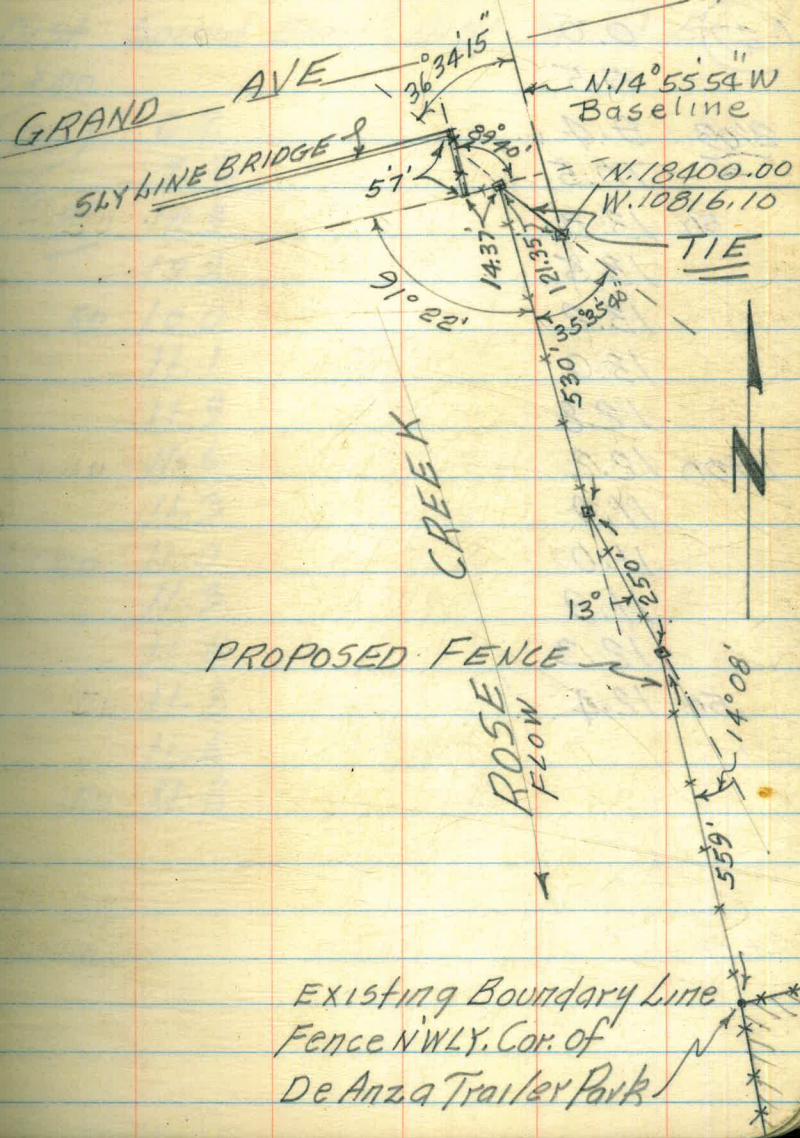 GRAND AVE
36° 34' 15"
N.14° 55' 54" W
Baseline
SLY LINE BRIDGE
89° 40'
5.7'
N.18400.00
W.10816.10
TIE
14.37'
121.35'
91° 22'
35° 35' 40"
530'
N
CREEK
250'
13°
PROPOSED FENCE
14° 08'
ROSE
FLOW
559'
Existing Boundary Line
Fence N'WLY. Cor. of
De Anza Trailer Park